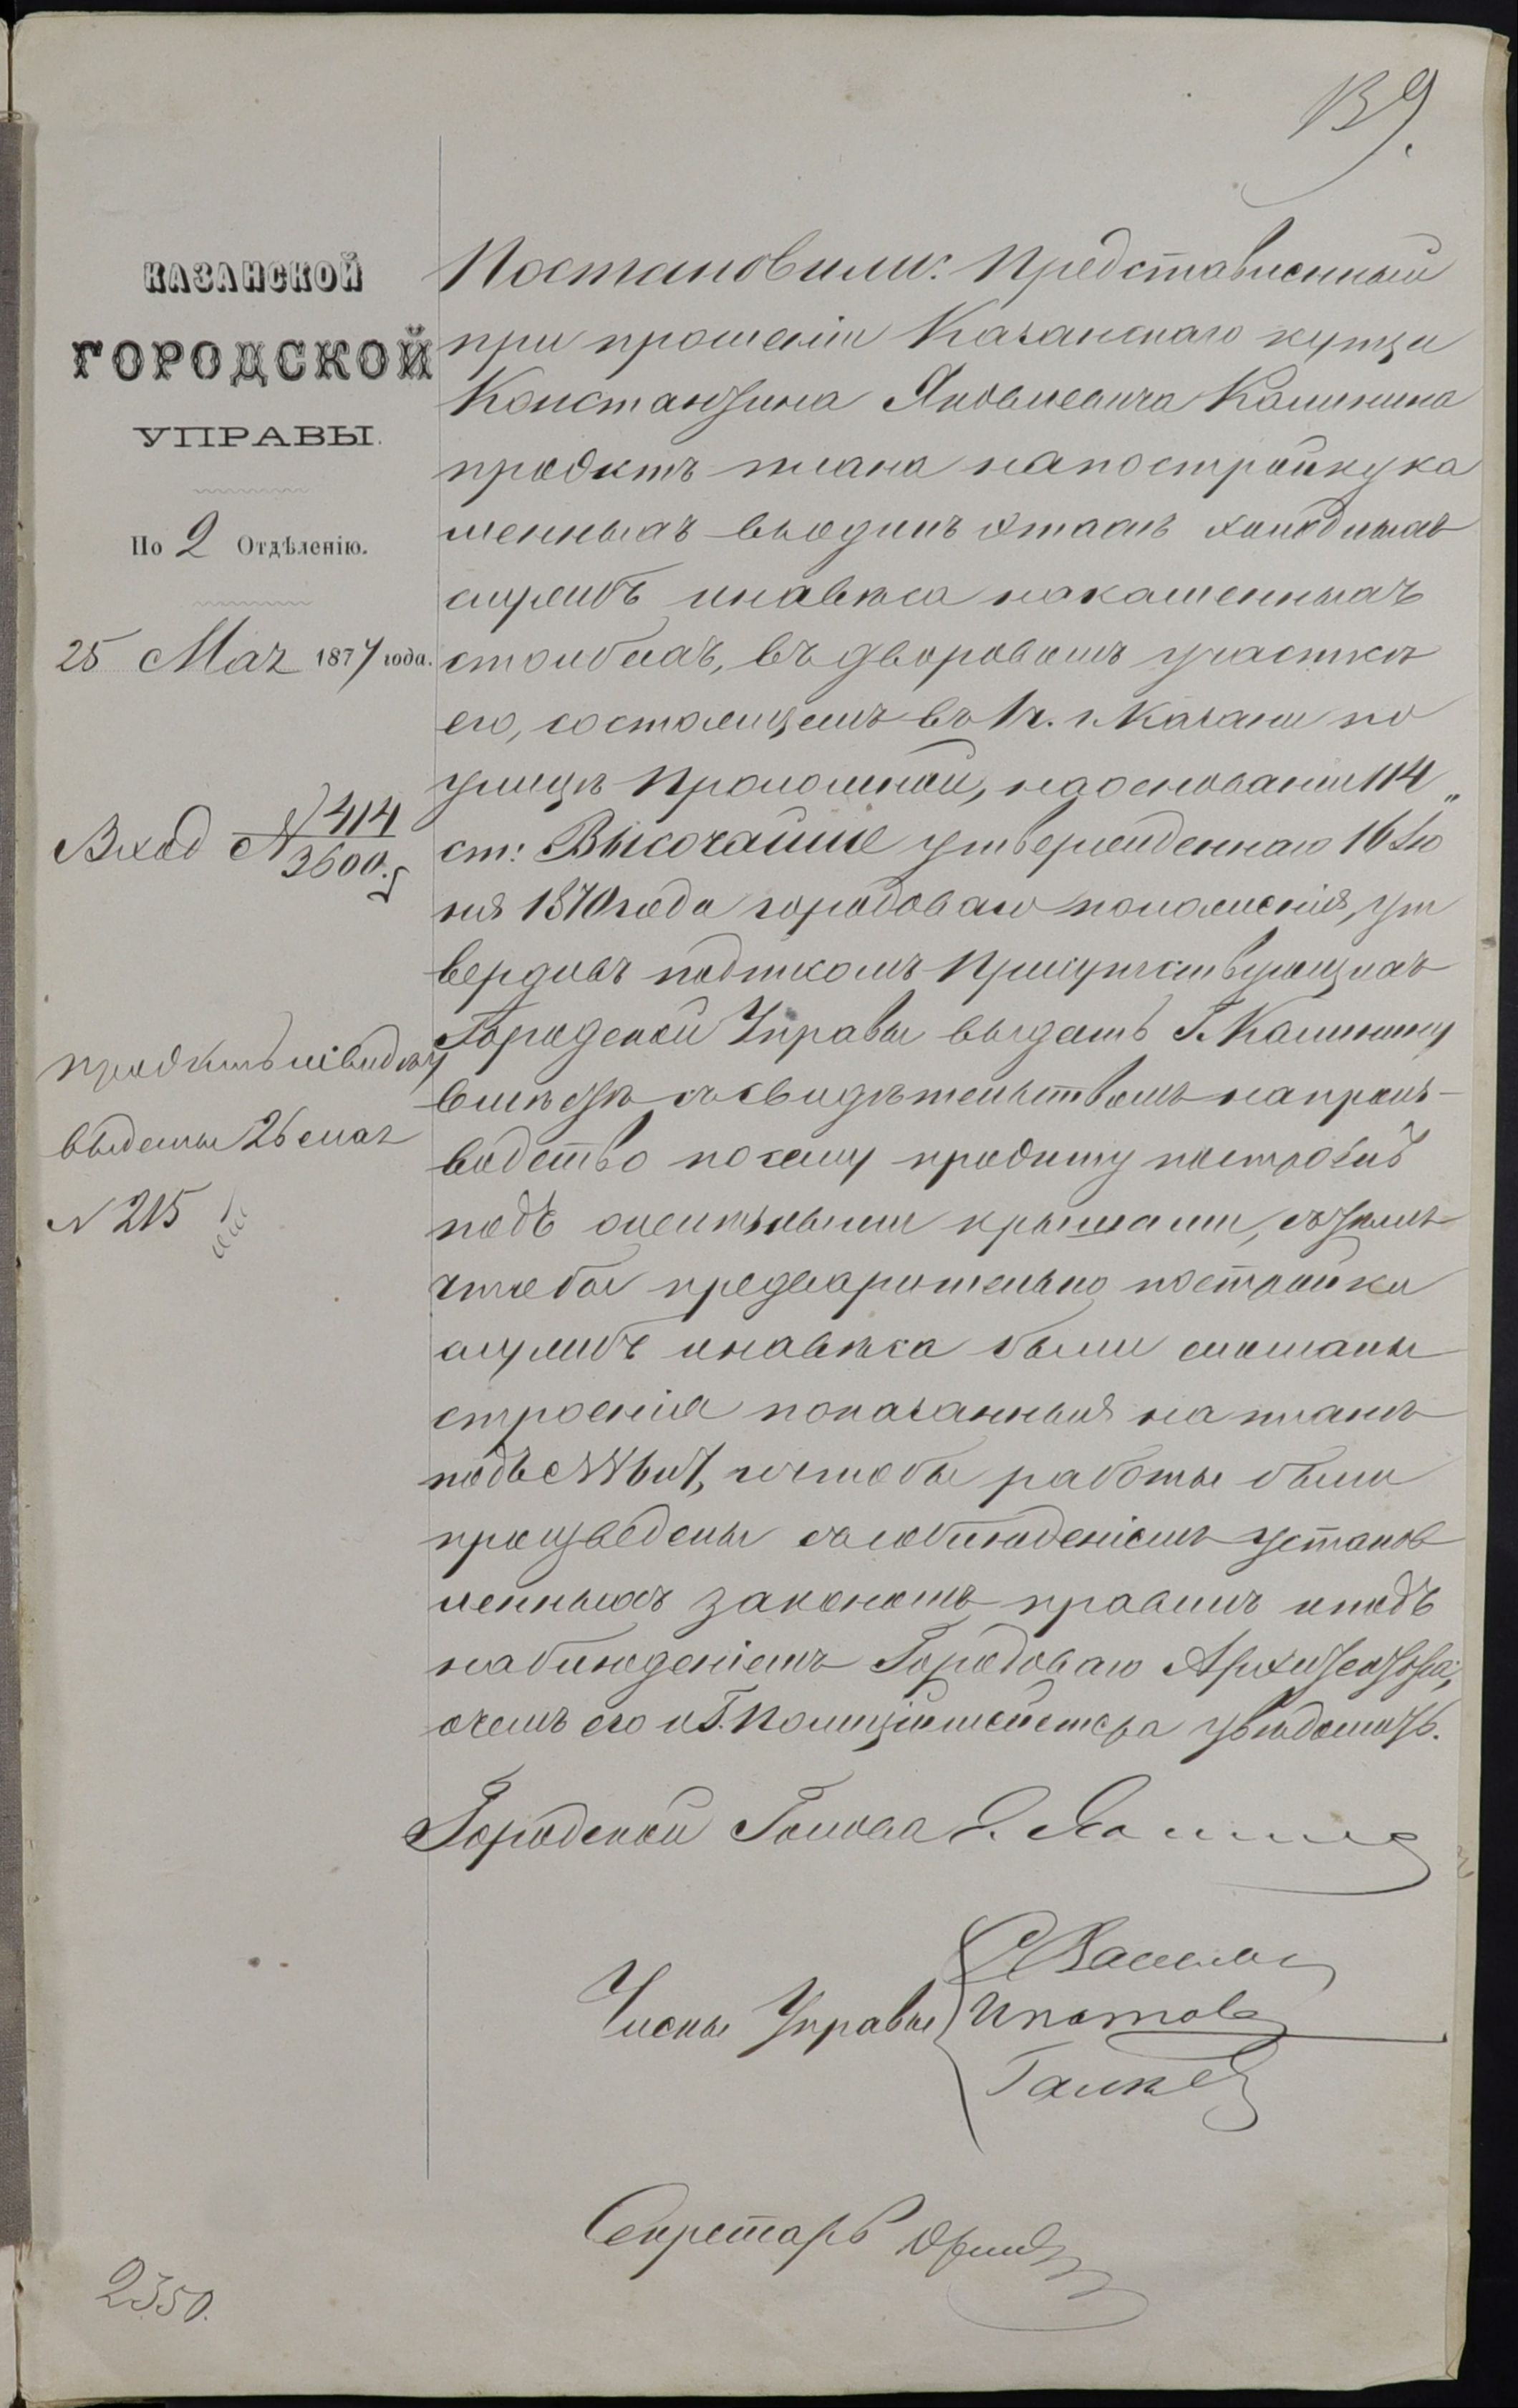 КАЗАНСКОЙ
ГОРОДСКОЙ
УПРАВЫ.
По 2 Отдѣленію.
25 Мая 1877 года.
Вход № 414
3600.
проэктъ и свид. 
выданы 26 мая
№ 215
Постановили: Представленный
при прошеніи Казанскаго купца
Константина Яковлевича Калинина
проэктъ плана на постройку ка
менныхъ въ одинъ этажъ холодныхъ
службъ и навѣса на каменныхъ
столбахъ, въ дворовомъ участкѣ
его, состоящемъ въ 1 ч. г. Казани по
улицѣ Проломной, на основаніи 114
ст: Высочайше утвержденнаго 16 Ію
ня 1870 года городоваго положенія, ут
вердивъ подписомъ Присутствующихъ
Городской Управы выдать Г. Калинину
вмѣстѣ съ свидѣтельствомъ на произ-
водство по сему проэкту построекъ
подъ желѣзными крышами, съ тѣмъ
чтобы предварительно постройки
службъ и навѣса были сломаны
строенія показанныя на планѣ
подъ №№ 6 и 7, и чтобы работы были
произведены съ соблюденіемъ установ
ленныхъ закономъ правилъ и подъ
наблюденіемъ Городоваго Архитектора,
о чемъ его и Г. Полиціймейстера увѣдомить.
Городской Голова
Члены Управы
Ипатовъ
Секретарь
2350.